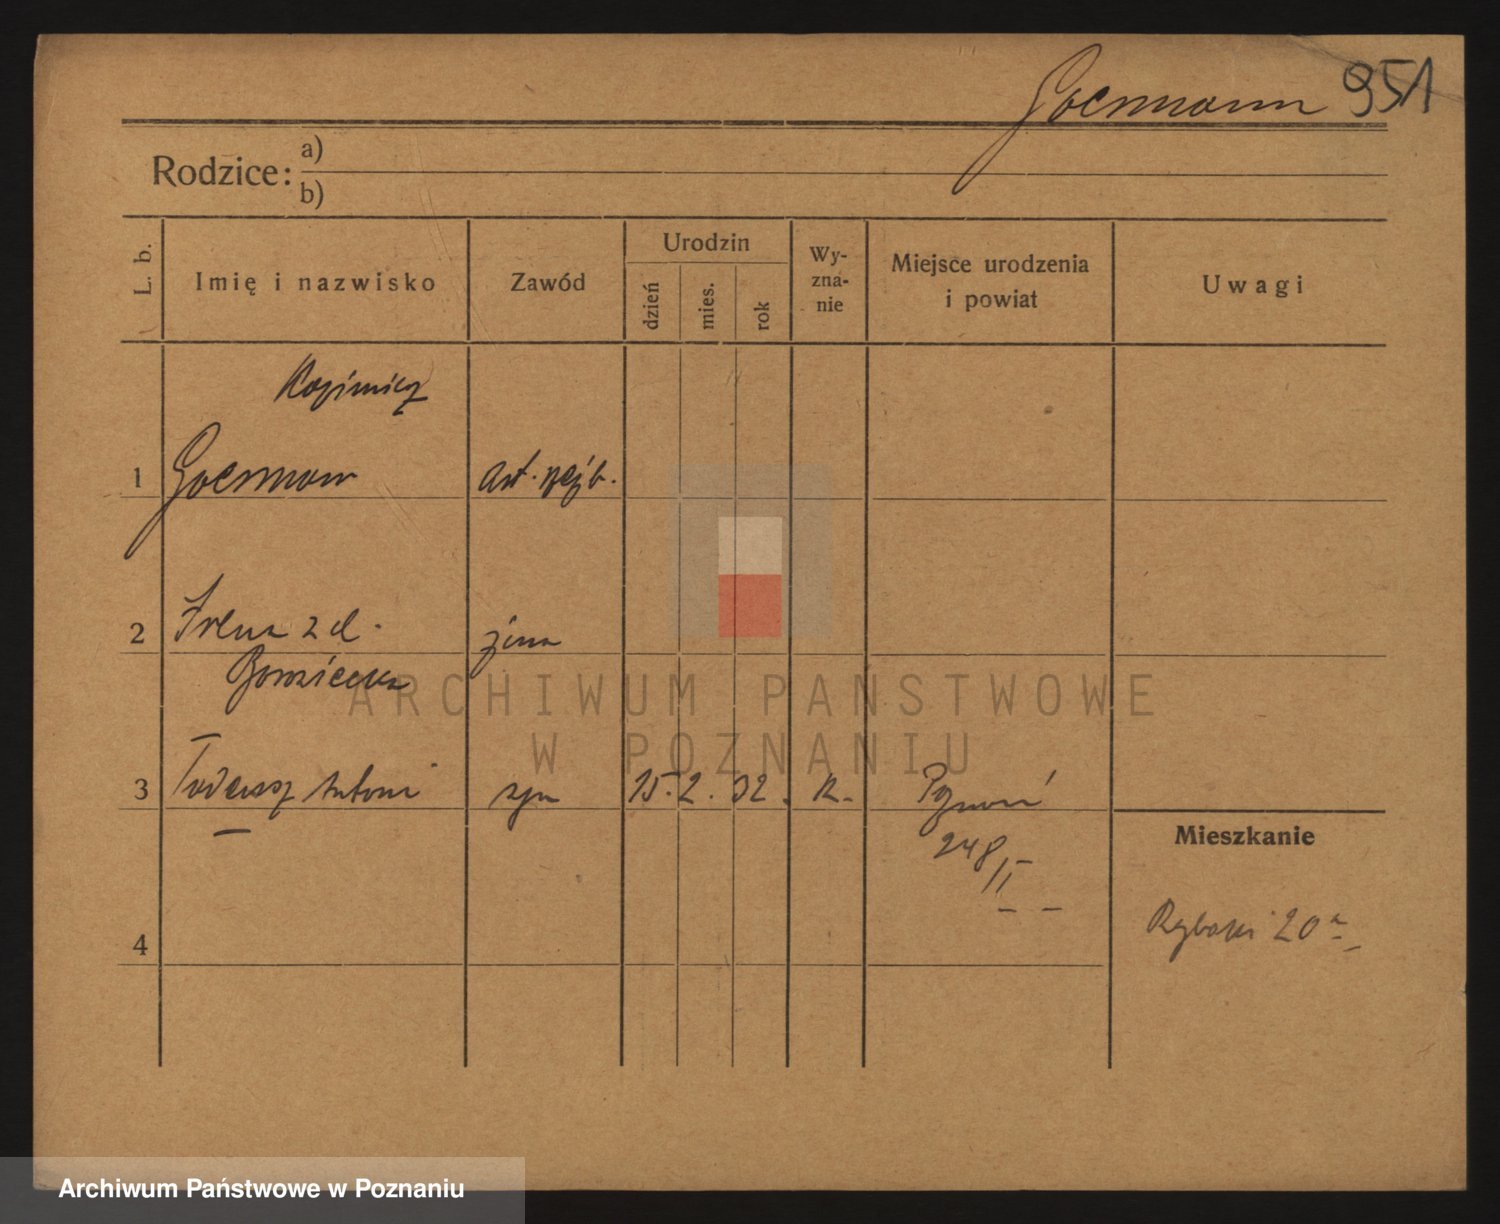 Goermann 951
Rodzice: a)
b)
L. b.
Imię i nazwisko
Zawód
Urodzin
dzień
mies.
rok
Wy-
zna-
nie
Miejsce urodzenia
i powiat
Uwagi
Kazimierz
1 Goermann art. rzeźb.
2 Irena z d. żona
3 Tadeusz Antoni syn 15. 2. 32. k. Poznań
248/II
Mieszkanie
Rybaki 20a
4
ARCHIWUM PAŃSTWOWE
W POZNANIU
Archiwum Państwowe w Poznaniu